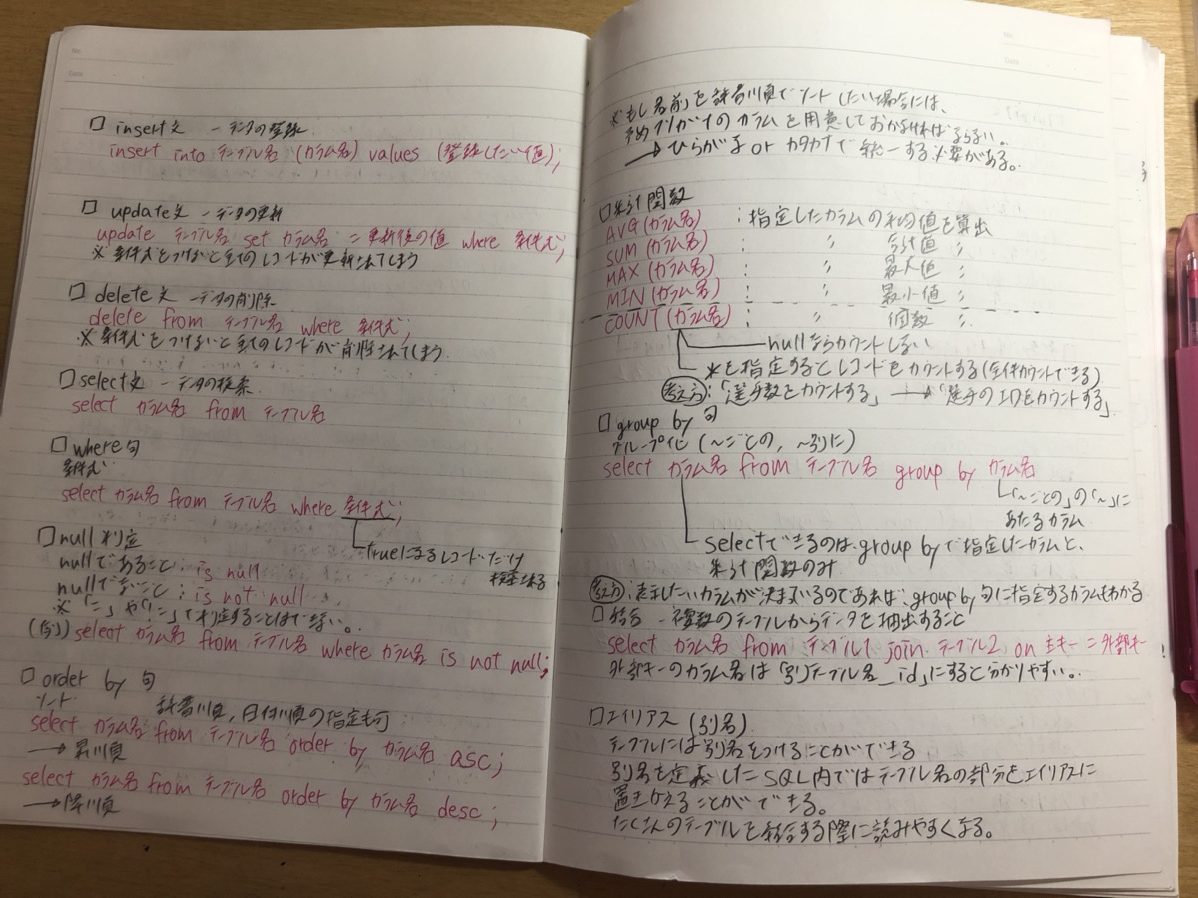 □ insert文 ー データの登録
insert into テーブル名 (カラム名) values (登録したい値);
□ update文 ー データの更新
update テーブル名 set カラム名 = 更新後の値 where 条件式;
※ 条件式をつけないと全てのレコードが更新されてしまう
□ delete文 ー データの削除
delete from テーブル名 where 条件式;
※ 条件式をつけないと全てのレコードが削除されてしまう
□ select文 ー データの検索
select カラム名 from テーブル名
□ where句
条件式
select カラム名 from テーブル名 where 条件式;
trueになるレコードだけ
検索される
□ null判定
nullであること : is null
nullでないこと : is not null
※「=」や「!=」で判定することはできない。
(例) select カラム名 from テーブル名 where カラム名 is not null;
□ order by 句
ソート 辞書順, 日付順の指定も可
select カラム名 from テーブル名 order by カラム名 asc;
→ 昇順
select カラム名 from テーブル名 order by カラム名 desc;
→ 降順
No.
Date
※もし名前を辞書順でソートしたい場合には、
予めフリガナのカラムを用意しておかなければならない。
→ ひらがな or カタカナで統一する必要がある。
□ 集計関数
AVG (カラム名) : 指定したカラムの平均値を算出
SUM (カラム名) : 〃 合計値 〃
MAX (カラム名) : 〃 最大値 〃
MIN (カラム名) : 〃 最小値 〃
COUNT (カラム名) : 〃 個数 〃
nullならカウントしない
*を指定するとレコードをカウントする(全件カウントできる)
考え方 : 「選手数をカウントする」 → 「選手のIDをカウントする」
□ group by 句
グループ化 (〜ごとの, 〜別に)
select カラム名 from テーブル名 group by カラム名
「〜ごとの」の「〜」に
あたるカラム
selectできるのは、group byで指定したカラムと、
集計関数のみ
考え方 : 表示したいカラムが決まっているのであれば、group by 句に指定するカラムもわかる
□ 結合 ー 複数のテーブルからデータを抽出すること
select カラム名 from テーブル1 join テーブル2 on 主キー = 外部キー
外部キーのカラム名は「別テーブル名_id」にすると分かりやすい。
□ エイリアス (別名)
テーブルには別名をつけることができる
別名を定義したSQL内ではテーブル名の部分をエイリアスに
置きかえることができる。
たくさんのテーブルを結合する際に読みやすくなる。